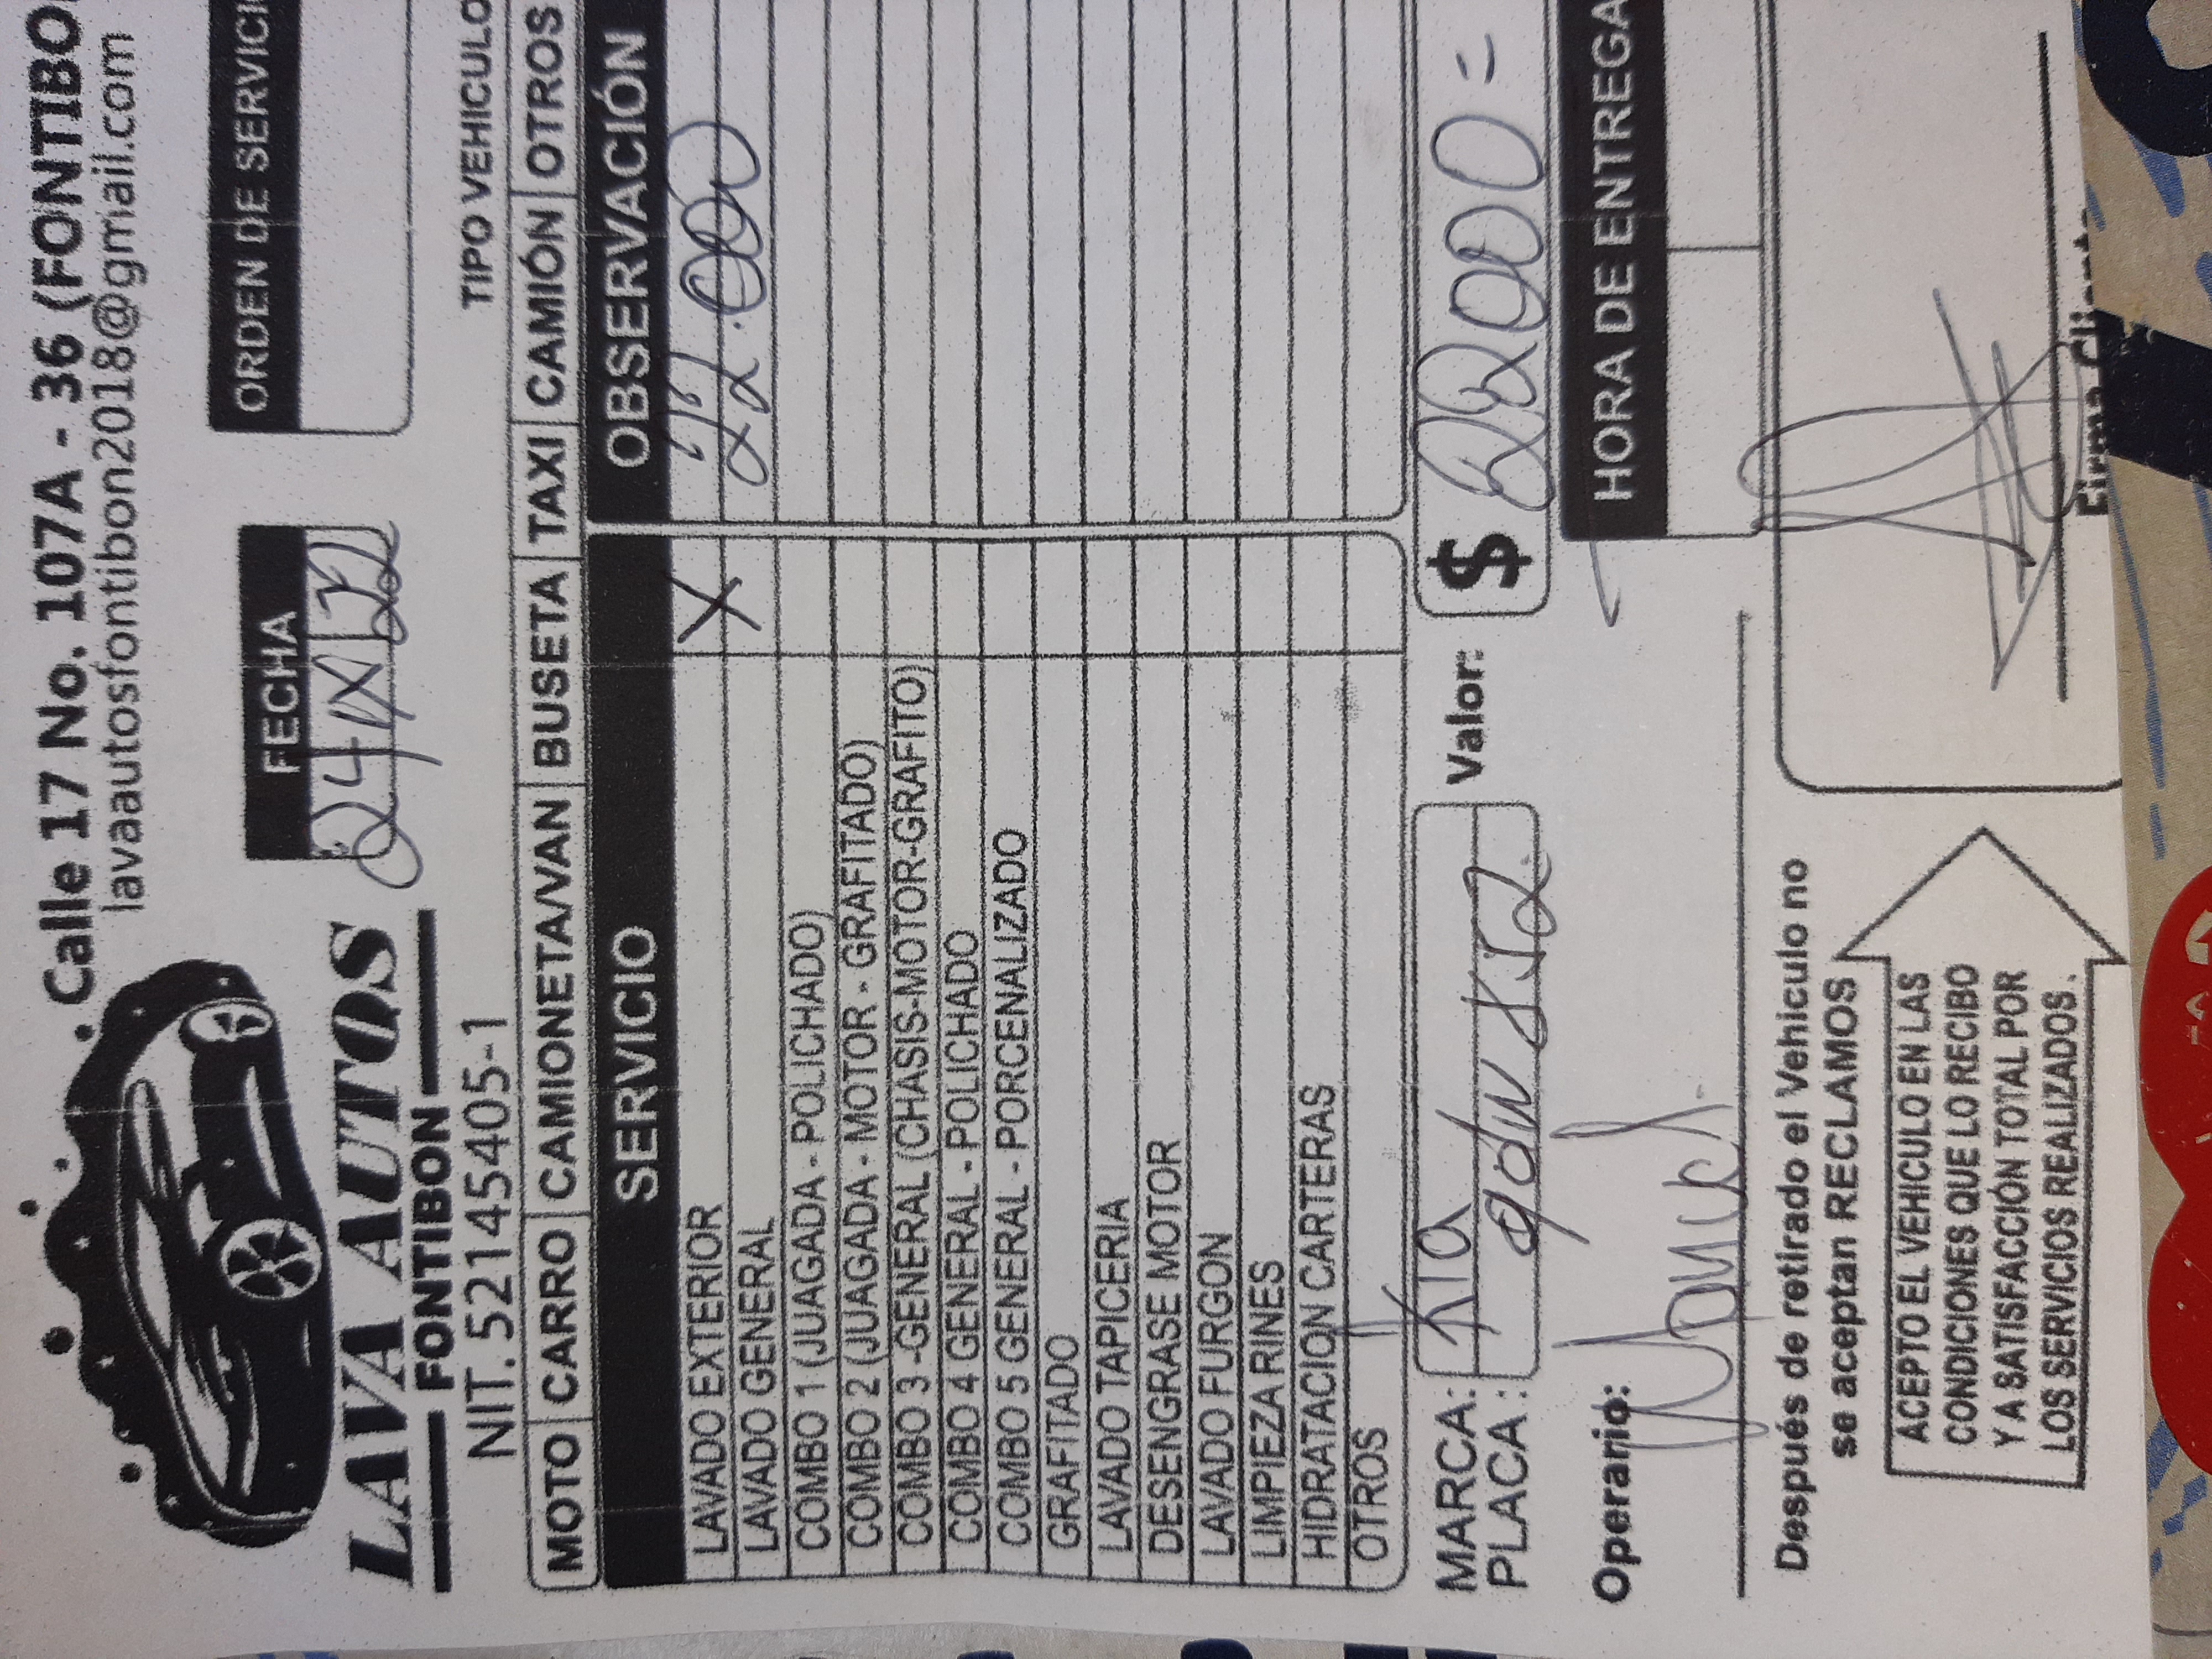 Calle 17 No. 107A - 36 (FONTIBO
lavaautosfontibon2018@gmail.com
LAVA AUTOS
FONTIBON
NIT. 52145405-1
FECHA
24 IX 22
ORDEN DE SERVICI
TIPO VEHICULO
MOTO CARRO CAMIONETA/VAN BUSETA TAXI CAMIÓN OTROS
SERVICIO OBSERVACIÓN
LAVADO EXTERIOR X
LAVADO GENERAL 22.000
COMBO 1 (JUAGADA - POLICHADO)
COMBO 2 (JUAGADA - MOTOR - GRAFITADO)
COMBO 3 -GENERAL (CHASIS-MOTOR-GRAFITO)
COMBO 4 GENERAL - POLICHADO
COMBO 5 GENERAL - PORCENALIZADO
GRAFITADO
LAVADO TAPICERIA
DESENGRASE MOTOR
LAVADO FURGON
LIMPIEZA RINES
HIDRATACION CARTERAS
OTROS
MARCA: KIA Valor: $ 22000 =
PLACA:
Operario:
HORA DE ENTREGA
Después de retirado el Vehiculo no
se aceptan RECLAMOS
ACEPTO EL VEHICULO EN LAS
CONDICIONES QUE LO RECIBO
Y A SATISFACCIÓN TOTAL POR
LOS SERVICIOS REALIZADOS.
Firma Cliente